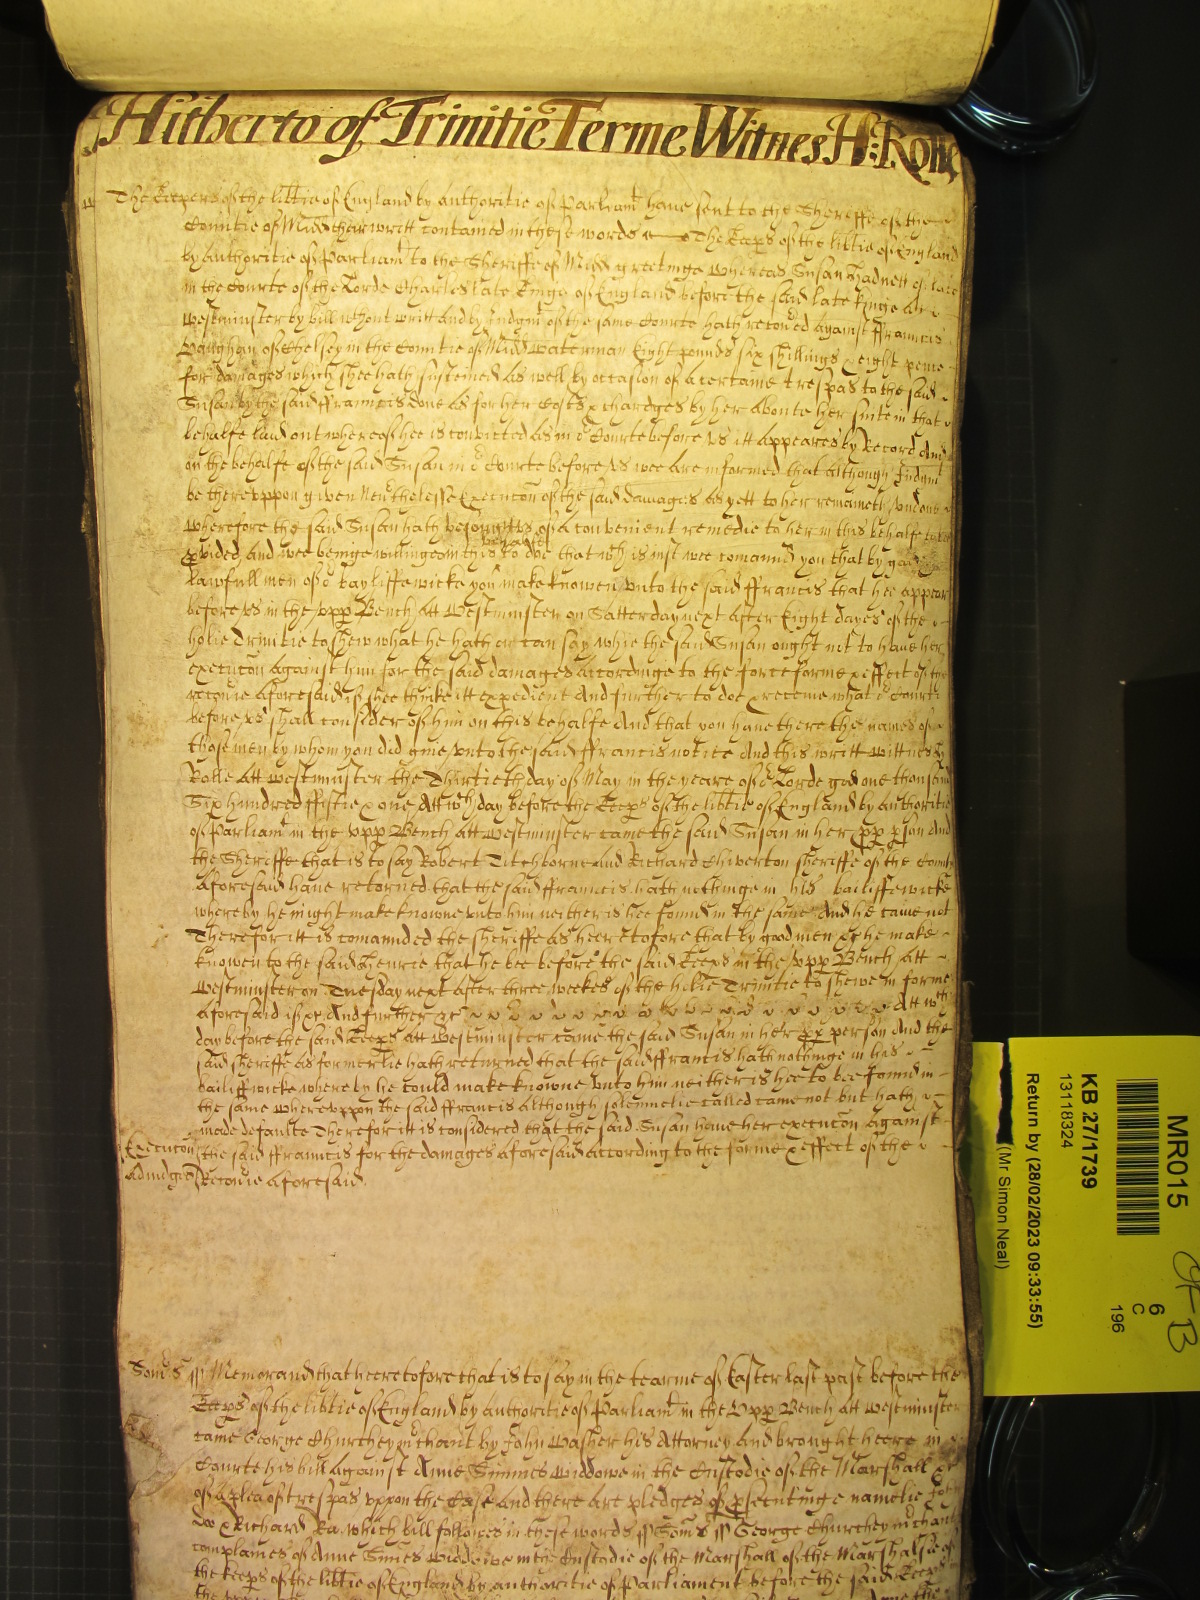 Hitherto of Trinitie Terme Witnes H: Rolle
The Keepers of the libtie of England by authoritie of Parliamt have sent to the Sheriffe of the
Countie of Midd their writt contained in these words The Keeps of the libtie of England
by authoritie of Parliamt to the Sheriffe of Midd greetinge Whereas Susan Hadnett of late
in the Courte of the Lorde Charles late Kinge of England before the said late Kinge att
Westminster by bill without writt and by Judgmt of the same Courte hath recoved against ffrancis
Vaughan of Chelsey in the Countie of Midd waterman Eight pounds six shillings x eight pence
for damages which shee hath susteined as well by occasion of a certaine trespas to the said
Susan by the said ffrancis done as for her Costs x chardges by her aboute her suite in that
behalfe laid out whereof hee is convicted as in or Courte before us itt appeares by Record And
on the behalfe of the said Susan in or Courte before us wee are informed that although Judgmt
be thereuppon given Neuthelesse Execucon of the said damages as yett to her remaineth undone
wherefore the said Susan hath besought us of a convenient remedie to her in this behalfe to bee
pvided And wee beinge willinge in this behalfe to doe that wch is just wee comannd you that by good
lawfull men of or bayliffewicke you make knowen unto the said ffrancis that hee appear
before us in the upp Bench att Westminster on Satterday next after Eight dayes of the
holie Trinitie to shew what he hath or can say while the said Susan ought not to have her
execucon against him for the said damages accordinge to the force forme x effect of the
recovie aforesaid if shee thinke itt expedient And further to doe x receive what or Courte
before us shall consider of him on this behalfe And that you have there the names of
those men by whom you did give unto the said ffrancis notice And this writt Wittnes H
Rolle att Westminster the Thirtieth day of May in the yeare of or Lorde god one thousand
Six hundred ffiftie x one Att wch day before the Keeps of the libtie of England by authoritie
of Parliamt in the upp Bench att Westminster came the said Susan in her pp pson And
the Sheriffe that is to say Robert Titchborne and Richard Chiverton sheriffe of the County
aforesaid have retorned that the said ffrancis hath nothinge in his bailiffewicke
whereby he might make knowne unto him neither is hee found in the same And he came not
Therefor itt is comannded the sheriffe as heeretofore that by good men xc he make
knowen to the said Henrie that he bee before the said Keeps in the upp Bench att
Westminster on Tuesday next after three weekes of the holie Trinitie to shewe in forme
aforesaid if xc And further xc Att wch
day before the said Keeps att Westminster came the said Susan in her pp person And the
said sheriffe as formerlie hath returned that the said ffrancis hath nothinge in his
bailiffwicke whereby he could make knowne unto him neither is hee to bee found in
the same whereuppon the said ffrancis although solemnelie called came not but hath
made defaulte Therefor itt is considered that the said Susan have her execucon against
Execucon the said ffrancis for the damages aforesaid according to the forme x effect of the
Adiudged Recovie aforesaid
Somst Memorand that heeretofore that is to say in the tearme of Easter last past before the
Keeps of the libtie of England by authoritie of Parliamt in the Upp Bench att Westminster
came George Churchey mchant by John Washer his Attorney And brought heere in
Courte his bill against Anne Simmes widdowe in the Custodie of the Marshall xc
of a plea of trespas uppon the Case And there are pledges of psecutinge namelie John
Doo x Richard Roo which bill followes in these words Somst George Churchey mchant
complaines of Anne Simes widdowe in the Custodie of the Marshall of the Marshalsie of
the Keeps of the libtie of England by authoritie of Parliament before the said Keeps
MR015
KB 27/1739
13118324
Return by (28/02/2023 09:33:55)
(Mr Simon Neal)
6
C
196